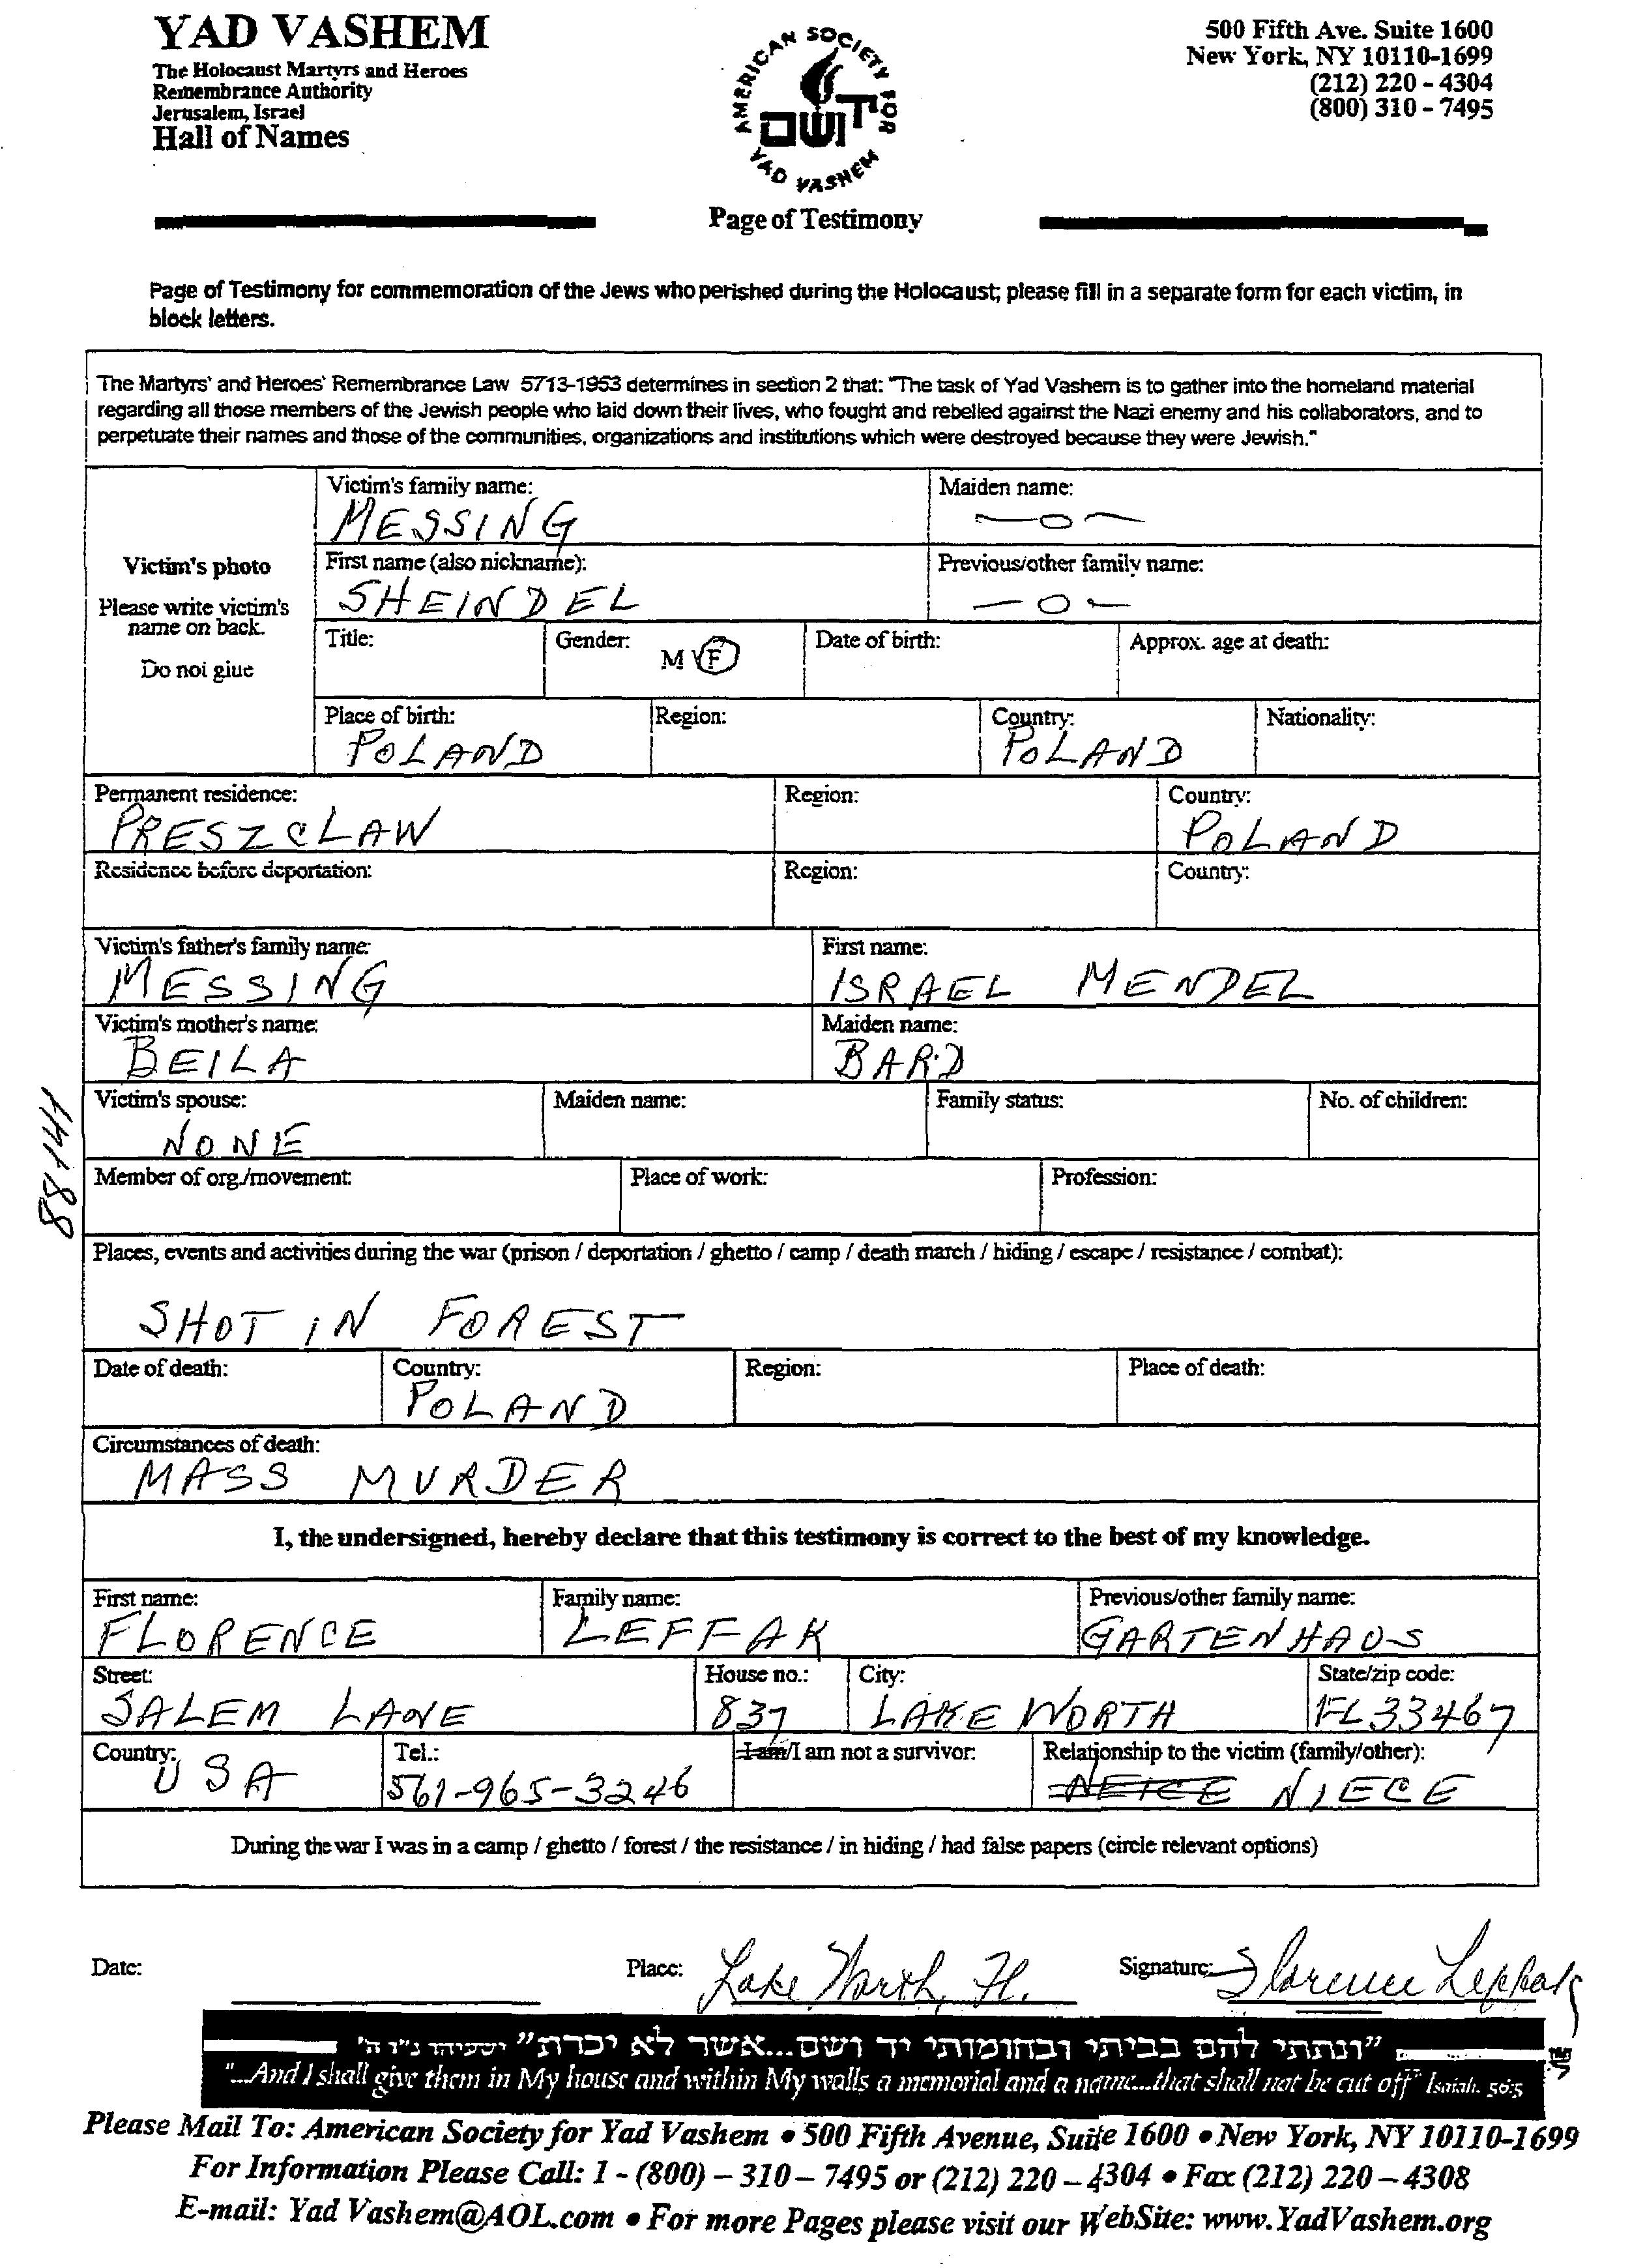 YAD VASHEM
The Holocaust Martyrs and Heroes
Remembrance Authority
Jerusalem, Israel
Hall of Names
AMERICAN SOCIETY FOR
יד ושם
YAD VASHEM
500 Fifth Ave. Suite 1600
New York, NY 10110-1699
(212) 220 - 4304
(800) 310 - 7495
Page of Testimony
Page of Testimony for commemoration of the Jews who perished during the Holocaust; please fill in a separate form for each victim, in
block letters.
The Martyrs' and Heroes' Remembrance Law 5713-1953 determines in section 2 that: "The task of Yad Vashem is to gather into the homeland material
regarding all those members of the Jewish people who laid down their lives, who fought and rebelled against the Nazi enemy and his collaborators, and to
perpetuate their names and those of the communities, organizations and institutions which were destroyed because they were Jewish."
Victim's photo
Please write victim's
name on back.
Do not glue
Victim's family name: Maiden name:
MESSING —o—
First name (also nickname): Previous/other family name:
SHEINDEL —o—
Title: Gender: M / F Date of birth: Approx. age at death:
Place of birth: Region: Country: Nationality:
POLAND POLAND
Permanent residence: Region: Country:
PRESZCLAW POLAND
Residence before deportation: Region: Country:
Victim's father's family name: First name:
MESSING ISRAEL MENDEL
Victim's mother's name: Maiden name:
BEILA BARD
Victim's spouse: Maiden name: Family status: No. of children:
NONE
88141
Member of org./movement: Place of work: Profession:
Places, events and activities during the war (prison / deportation / ghetto / camp / death march / hiding / escape / resistance / combat):
SHOT IN FOREST
Date of death: Country: Region: Place of death:
POLAND
Circumstances of death:
MASS MURDER
I, the undersigned, hereby declare that this testimony is correct to the best of my knowledge.
First name: Family name: Previous/other family name:
FLORENCE LEFFAK GARTENHAUS
Street: House no.: City: State/zip code:
SALEM LANE 837 LAKE WORTH FL 33467
Country: Tel.: I am/I am not a survivor: Relationship to the victim (family/other):
USA 561-965-3246 NEICE NIECE
During the war I was in a camp / ghetto / forest / the resistance / in hiding / had false papers (circle relevant options)
Date: Place: Lake Worth, Fl. Signature: Florence Leffak
"ונתתי להם בביתי ובחומותי יד ושם...אשר לא יכרת" ישעיהו נ"ו ה'
"...And I shall give them in My house and within My walls a memorial and a name...that shall not be cut off" Isaiah. 56:5
Please Mail To: American Society for Yad Vashem • 500 Fifth Avenue, Suite 1600 • New York, NY 10110-1699
For Information Please Call: 1 - (800) – 310 – 7495 or (212) 220 – 4304 • Fax (212) 220 – 4308
E-mail: Yad Vashem@AOL.com • For more Pages please visit our WebSite: www.YadVashem.org